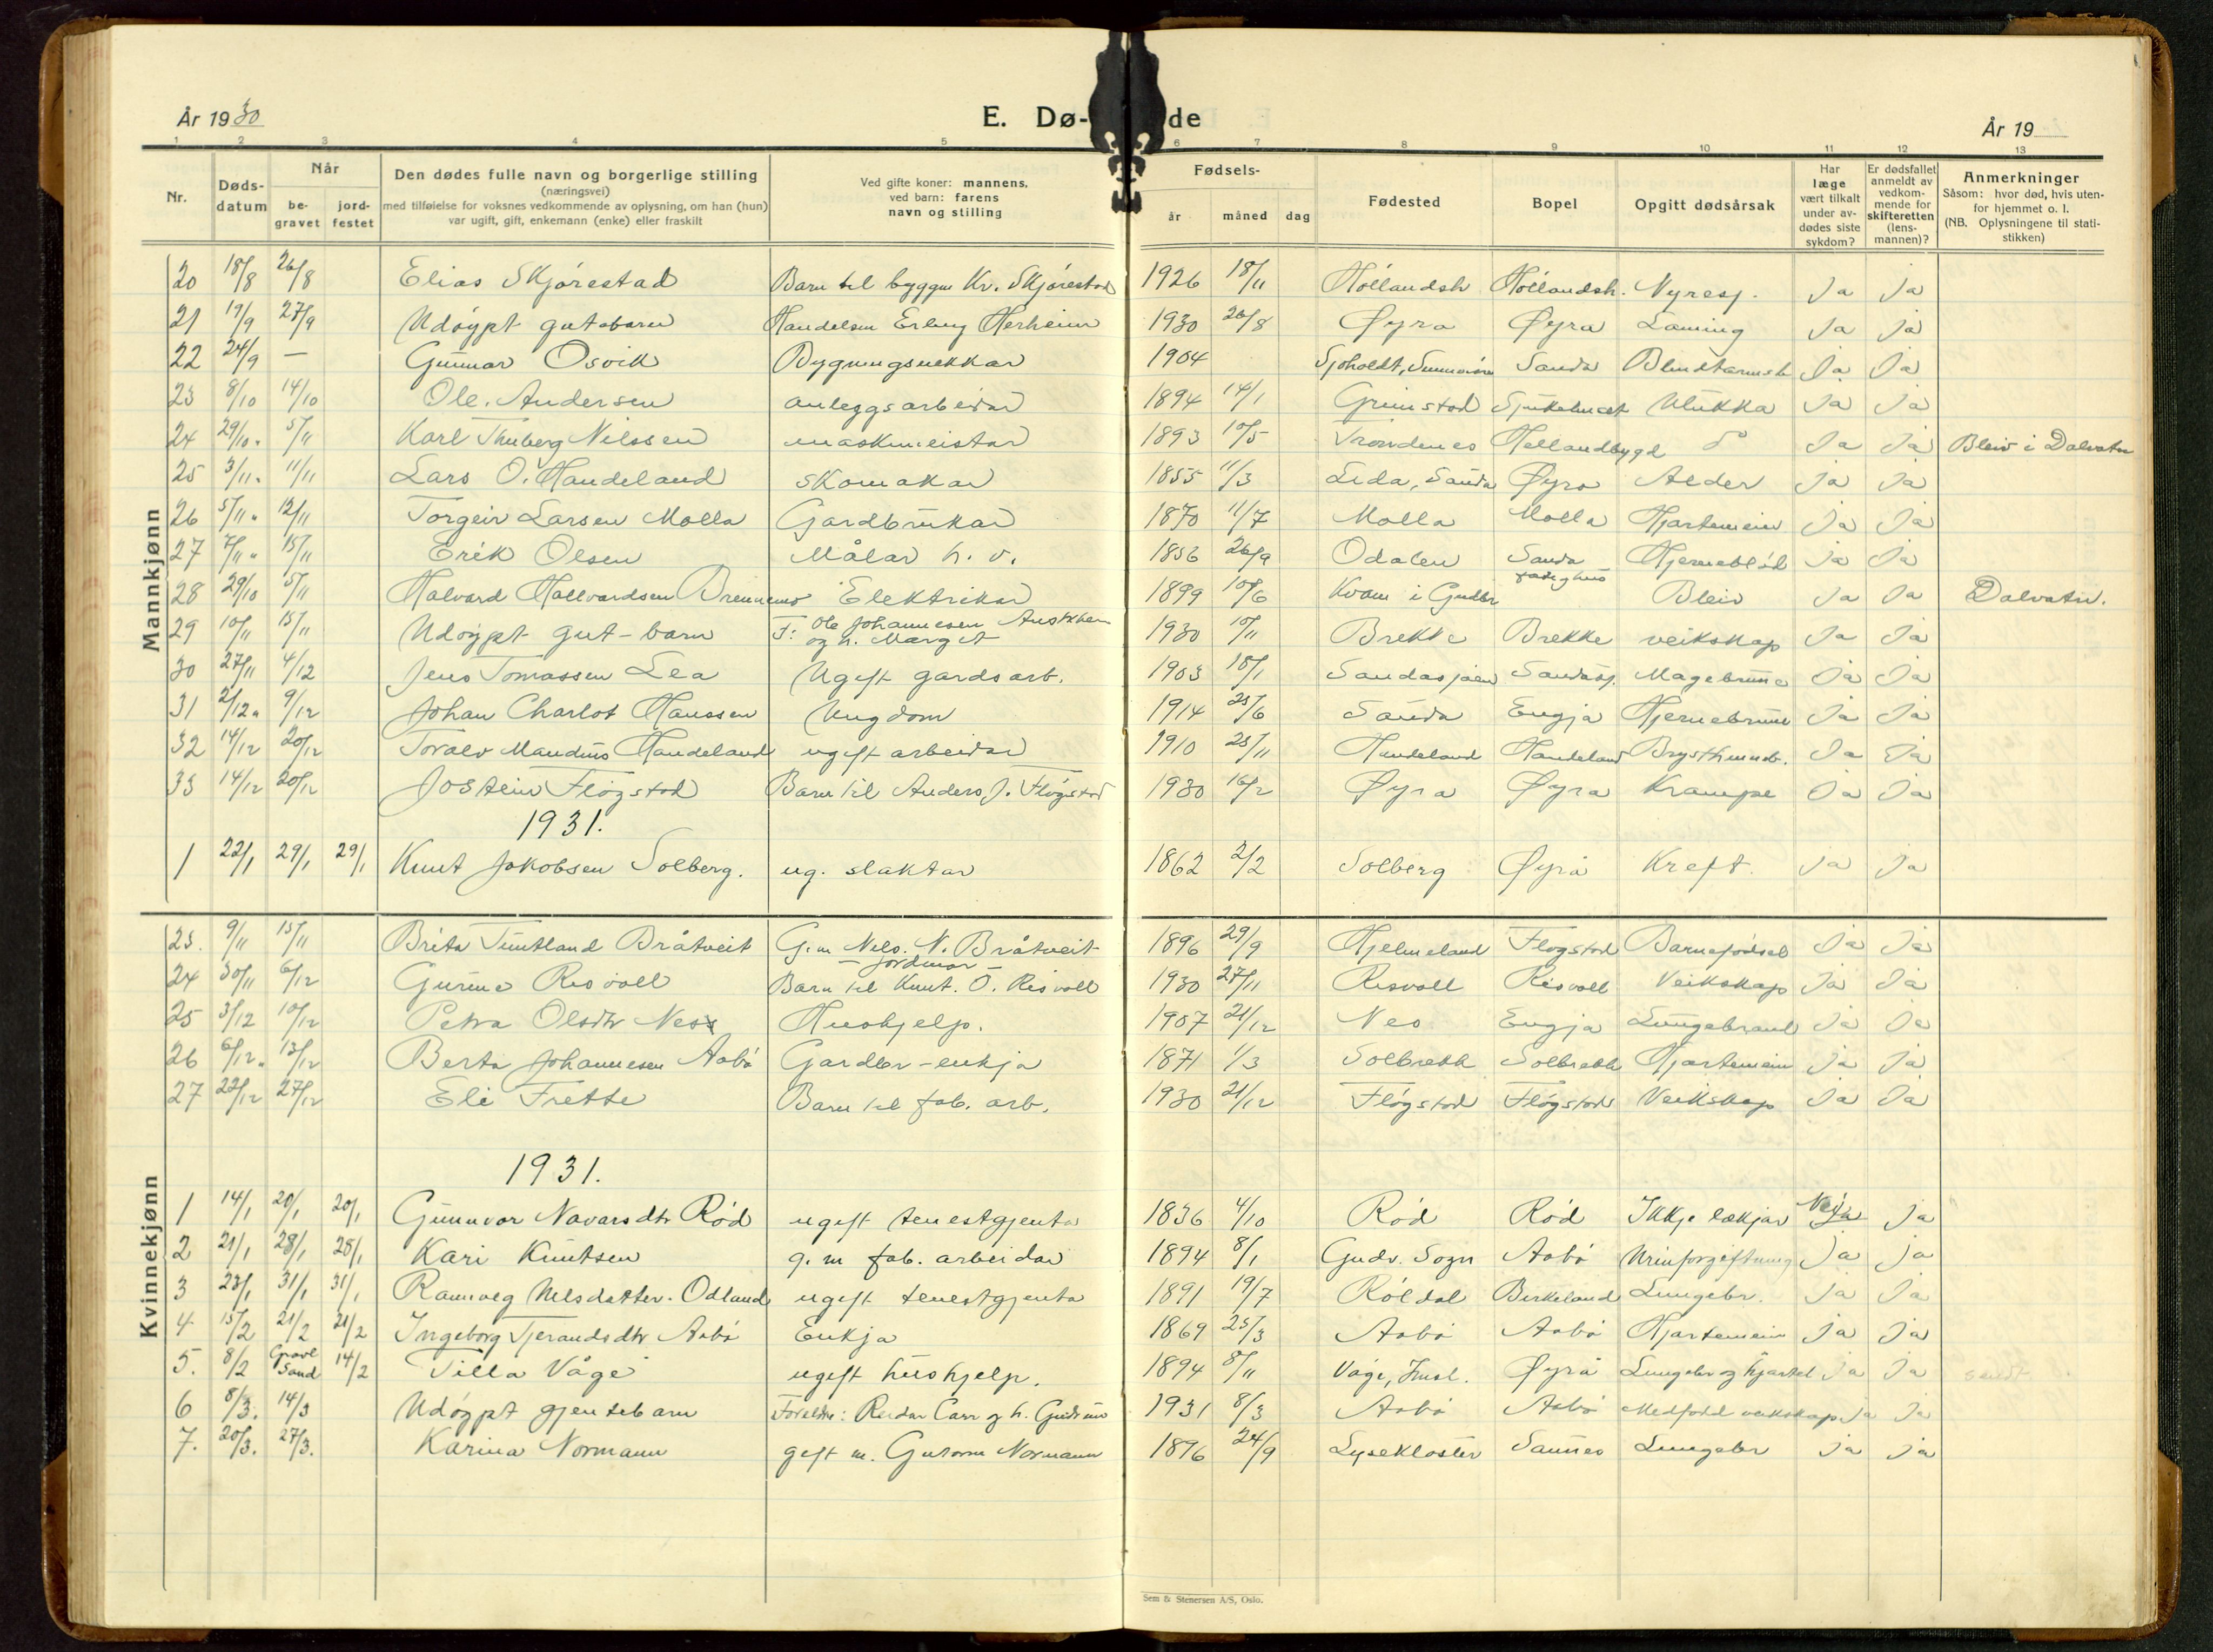 År 1930
E. Dø-de
År 19
1 2 3 4 5 6 7 8 9 10 11 12 13
Nr.
Døds-datum
Når
be-gravet
jord-festet
Den dødes fulle navn og borgerlige stilling
(næringsvei)
med tilføielse for voksnes vedkommende av oplysning, om han (hun)
var ugift, gift, enkemann (enke) eller fraskilt
Ved gifte koner: mannens,
ved barn: farens
navn og stilling
Fødsels-
år måned dag
Fødested
Bopel
Opgitt dødsårsak
Har læge vært tilkalt under av-dødes siste sykdom?
Er dødsfallet anmeldt av vedkom-mende for skifteretten (lens-mannen)?
Anmerkninger
Såsom: hvor død, hvis uten-
for hjemmet o. l.
(NB. Oplysningene til stati-
stikken)
Mannkjønn
20 18/8 26/8 Elias Skjørestad Barn til byggm Kr. Skjørestad 1926 18/11 Höllandsh Höllandsh. Nyresj. Ja Ja
21 19/9 27/9 Udöypt gutebarn Handelsm Erling Herheim 1930 26/8 Øyra Øyra Laming Ja Ja
22 24/9 — Gunnar Osvik Bygningssnekkar 1904 Sjöholdt, Sunnmöre Sauda Blindtarmsb Ja Ja
23 8/10 14/10 Ole. Andersen anleggsarbeidar 1894 14/1 Grimstad Sjukehuset Ulukka Ja Ja
24 29/10. 5/11 Karl Thuberg Nilssen maskinmeistar 1893 10/5 Trondenes Hellandbygd Ja Ja Bleiv i Dalvatn
25 3/11. 11/11 Lars O. Handeland Skomakar 1855 11/3 Lida, Sauda Øyra Alder Ja Ja
26 5/11. 12/11 Torgeir Larsen Molla Gardbrukar 1870 11/7 Molla Molla Hjartemein Ja Ja
27 7/11. 15/11 Erik Olsen Målar h. v. 1856 26/9 Odalen Sauda fatighus Hjerneblöd Ja Ja
28 29/10 5/11 Halvard Hallvardsen Brennemo Elektrikar 1899 10/6 Kvam i Gudbr Bleiv Ja Ja Dalvatn.
29 10/11 15/11 Udöypt gut-barn F: Ole Johannesen og h. Marget 1930 10/11 Brekke Brekke veikskap Ja Ja
30 27/11 4/12 Jens Tomassen Lea Ugift gardsarb. 1903 18/1 Saudasjöen Saudasj. Magebrune Ja Ja
31 2/12. 9/12 Johan Charlot Hanssen Ungdom 1914 25/6 Sauda Engja Hjernebrune Ja Ja
32 14/12 20/12 Toralv Maudius Handeland ugift arbeidar 1910 25/11 Handeland Handeland Brysthinneb. Ja Ja
33 14/12 20/12 Jostein Flögstad Barn til Anders J. Flögstad 1930 16/2 Øyra Øyra Krampe Ja Ja
1931.
1 22/1 29/1 29/1 Knut Jakobsen Solberg. ug. slaktar 1862 2/2 Solberg Øyra Kreft. Ja Ja
Kvinnekjønn
23. 9/11 15/11 Brita Tuntland Bråtveit G.m Nels. N. Bråtveit - jordmor - 1896 29/9 Hjelmeland Flögstad Barnefödsel Ja Ja
24 30/11 6/12 Gurine Risvoll Barn til Knut. O. Risvoll 1930 27/11 Risvoll Risvoll Veikskap Ja Ja
25 3/12 10/12 Petra Olsdtr Ness Hushjelp. 1907 21/12 Nes Engja Lungebrand Ja Ja
26 6/12. 13/12 Berta Johannesen Aabö Gardbr-enkja 1871 1/3 Solbrekk Solbrekk Hjartemein Ja Ja
27 22/12 27/12 Eli Frette Barn til fab. arb. 1930 21/12 Flögstad Flögstad Veikskap Ja Ja
1931.
1 14/1 20/1 20/1 Gunnvor Navarsdtr Röd ugift tenestgjenta 1836 4/10 Röd Röd Ikkje lækjar Nei Ja
2 21/1 28/1 28/1 Kari Knutsen g. m fab. arbeidar 1894 8/1 Gudv. Sogn Aabö Urinforgiftning Ja Ja
3 23/1 31/1 31/1 Rannveg Nilsdatter. Odland ugift tenestgjenta 1891 19/7 Röldal Birkeland Lungebr. Ja Ja
4 15/2 21/2 21/2 Ingeborg Tjerandsdtr Aabö Enkja 1869 25/3 Aabö Aabö Hjartemein Ja Ja
5. 8/2 Gravl Sand 14/2 Tilla Våge ugift hushjelp. 1894 8/11 Våge, Øyra Lungebr og hjartel Ja Ja sendt
6 8/3. 14/3 Udöypt gjentebarn Foreldre: Reidar Carr og h. Gudrun 1931 8/3 Aabö Aabö Medfödd veikskap Ja Ja
7. 20/3. 27/3. Karina Normann gift m. Guttorm Normann 1896 24/9 Lysekloster Saunes Lungebr Ja Ja
Sem & Stenersen A/S, Oslo.